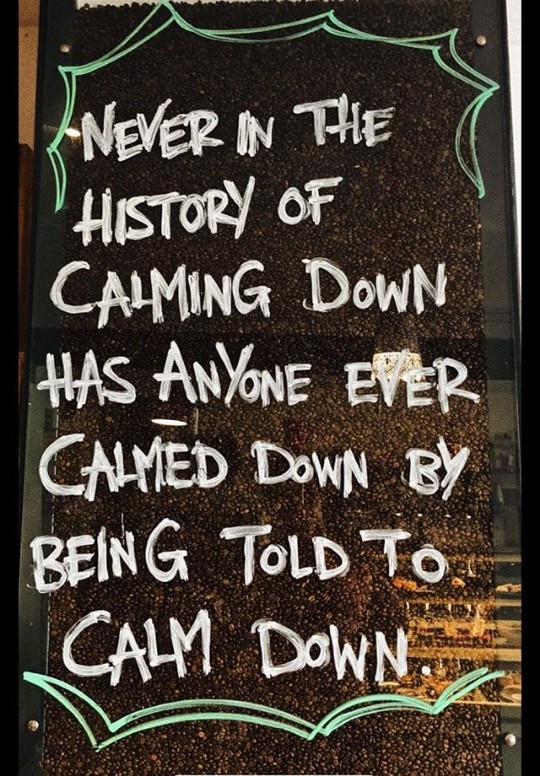 NEVER IN THE
HISTORY OF
CALMING DOWN
HAS ANYONE EVER
CALMED DOWN BY
BEING TOLD TO
CALM DOWN.